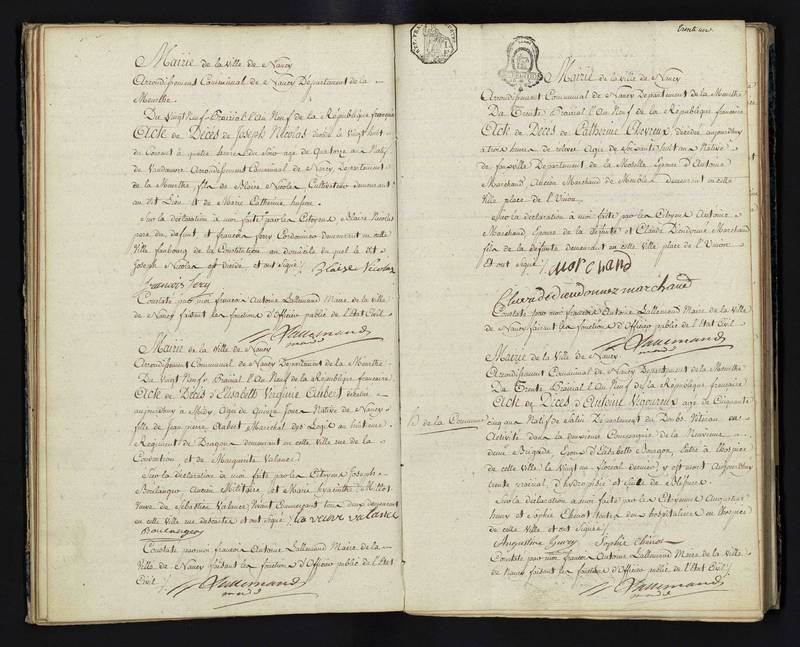 Mairie de la ville de Nancy
Arrondissement Communal de Nancy Département de la
Meurthe.
Du vingt Neuf Prairial l'An Neuf de la République française
Acte de Décès de Joseph Nicolas décédé le vingt huit
du Courant à quatre heures du Soir agé de Quatorze ans Natif
de Vandœuvre Arrondissement Communal de Nancy Département
de la Meurthe, fils de Blaise Nicolas Cultivateur demeurant
au dit Lieu et de Marie Catherine
Sur la déclaration à moi faite par les Citoyens Blaise Nicolas
père du défunt et françois fery Cordonnier demeurant en cette
Ville faubourg de la Constitution au domicile du quel le dit
Joseph Nicolas est décédé et ont signé /. Blaise Nicolas
francois fery
Constaté par moi françois Antoine Lallemand Maire de la Ville
de Nancy faisant les fonctions d'Officier public de l'Etat Civil
Lallemand
Mairie de la Ville de Nancy
Arrondissement Communal de Nancy Département de la Meurthe
Du Vingt Neuf Prairial l'An Neuf de la République française
Acte de Décès d'Elisabeth Virginie Aubert décédée
aujourdhuy à Midy, Agée de Quinze jours Native de Nancy
fille de Jean pierre Aubert Marechal des Logis au huitieme
Regiment de Dragon demeurant en cette ville rue de la
Convention et de Marguerite Valance
Sur la déclaration à moi faite par les Citoyens Joseph
Boulanger Ancien Militaire et Marie hyacinthe Millot
veuve de Sebastien Valance tous deux demeurant
en cette ville rue et ont signé /. La veuve valance
Boulanger
Constaté par moi françois Antoine Lallemand Maire de la
Ville de Nancy faisant les fonctions d'Officier public de l'Etat
Civil /.
Lallemand
trente un
Mairie de la ville de Nancy
Arrondissement Communal de Nancy Département de la Meurthe
Du Trente Prairial l'An Neuf de la République françoise
Acte de Décès de Catherine Chevreux décédée aujourdhuy
à trois heures de relevée Agée de Soixante huit ans Native
de Département de la Moselle Epouse d'Antoine
Marchand, Ancien Marchand de Meubles demeurant en cette
Ville place de l'Union
Sur la déclaration à moi faite par les Citoyens Antoine
Marchand, Epoux de la défunte et Claude Dieudonné Marchand
fils de la défunte demeurant en cette Ville place de l'Union
Et ont signé /. Marchand
dieudonnez marchand
Constaté par moi françois Antoine Lallemand Maire de la Ville
de Nancy faisant les fonctions d'Officier public de l'Etat Civil
Lallemand
Mairie de la Ville de Nancy
Arrondissement Communal de Nancy Département de la Meurthe
Du Trente Prairial l'An Neuf de la République française
Acte de Décès d'Antoine Vigoureux agé de Cinquante
de la Commune
cinq ans Natif de Salin Département du Doubs Vétéran en
Activité dans la deuxieme Compagnie de la Neuvieme
demie Brigade, Epoux d'Elisabeth Entré à l'hospice
de cette Ville le Vingt un floréal dernier y est mort Aujourdhuy
trente prairial, d'hydropisie et suite de Blessures
Sur la déclaration à moi faite par les Citoyennes Augustine
et Sophie Chinot toutes deux hospitalieres en l'hospice
de cette Ville et ont Signé /.
Augustine Sophie Chinot
Constaté par moi françois Antoine Lallemand Maire de la Ville
de Nancy faisant les fonctions d'Officier public de l'Etat Civil /.
Lallemand